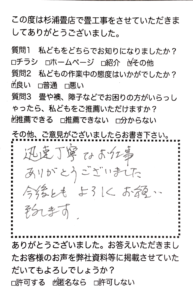 この度は杉浦畳店で畳工事をさせていただきまし
てありがとうございました。
質問1 私どもをどちらでお知りになりましたか?
□チラシ □ホームページ □紹介 ☑その他
質問2 私どもの作業中の態度はいかがでしたか?
☑良い □普通 □悪い
質問3 畳や襖、障子などでお困りの方がいらっし
ゃったら、私どもをご推薦いただけますか?
☑推薦できる □推薦できない □分からない
その他、ご意見がございましたらお書き下さい。
迅速丁寧なお仕事
ありがとうございました
今後とも よろしくお願い
致します.
ありがとうございました。お答えいただきまし
たお客様のお声を弊社資料等に掲載させていた
だいてもよろしでしょうか?
□許可する ☑匿名なら □許可しない